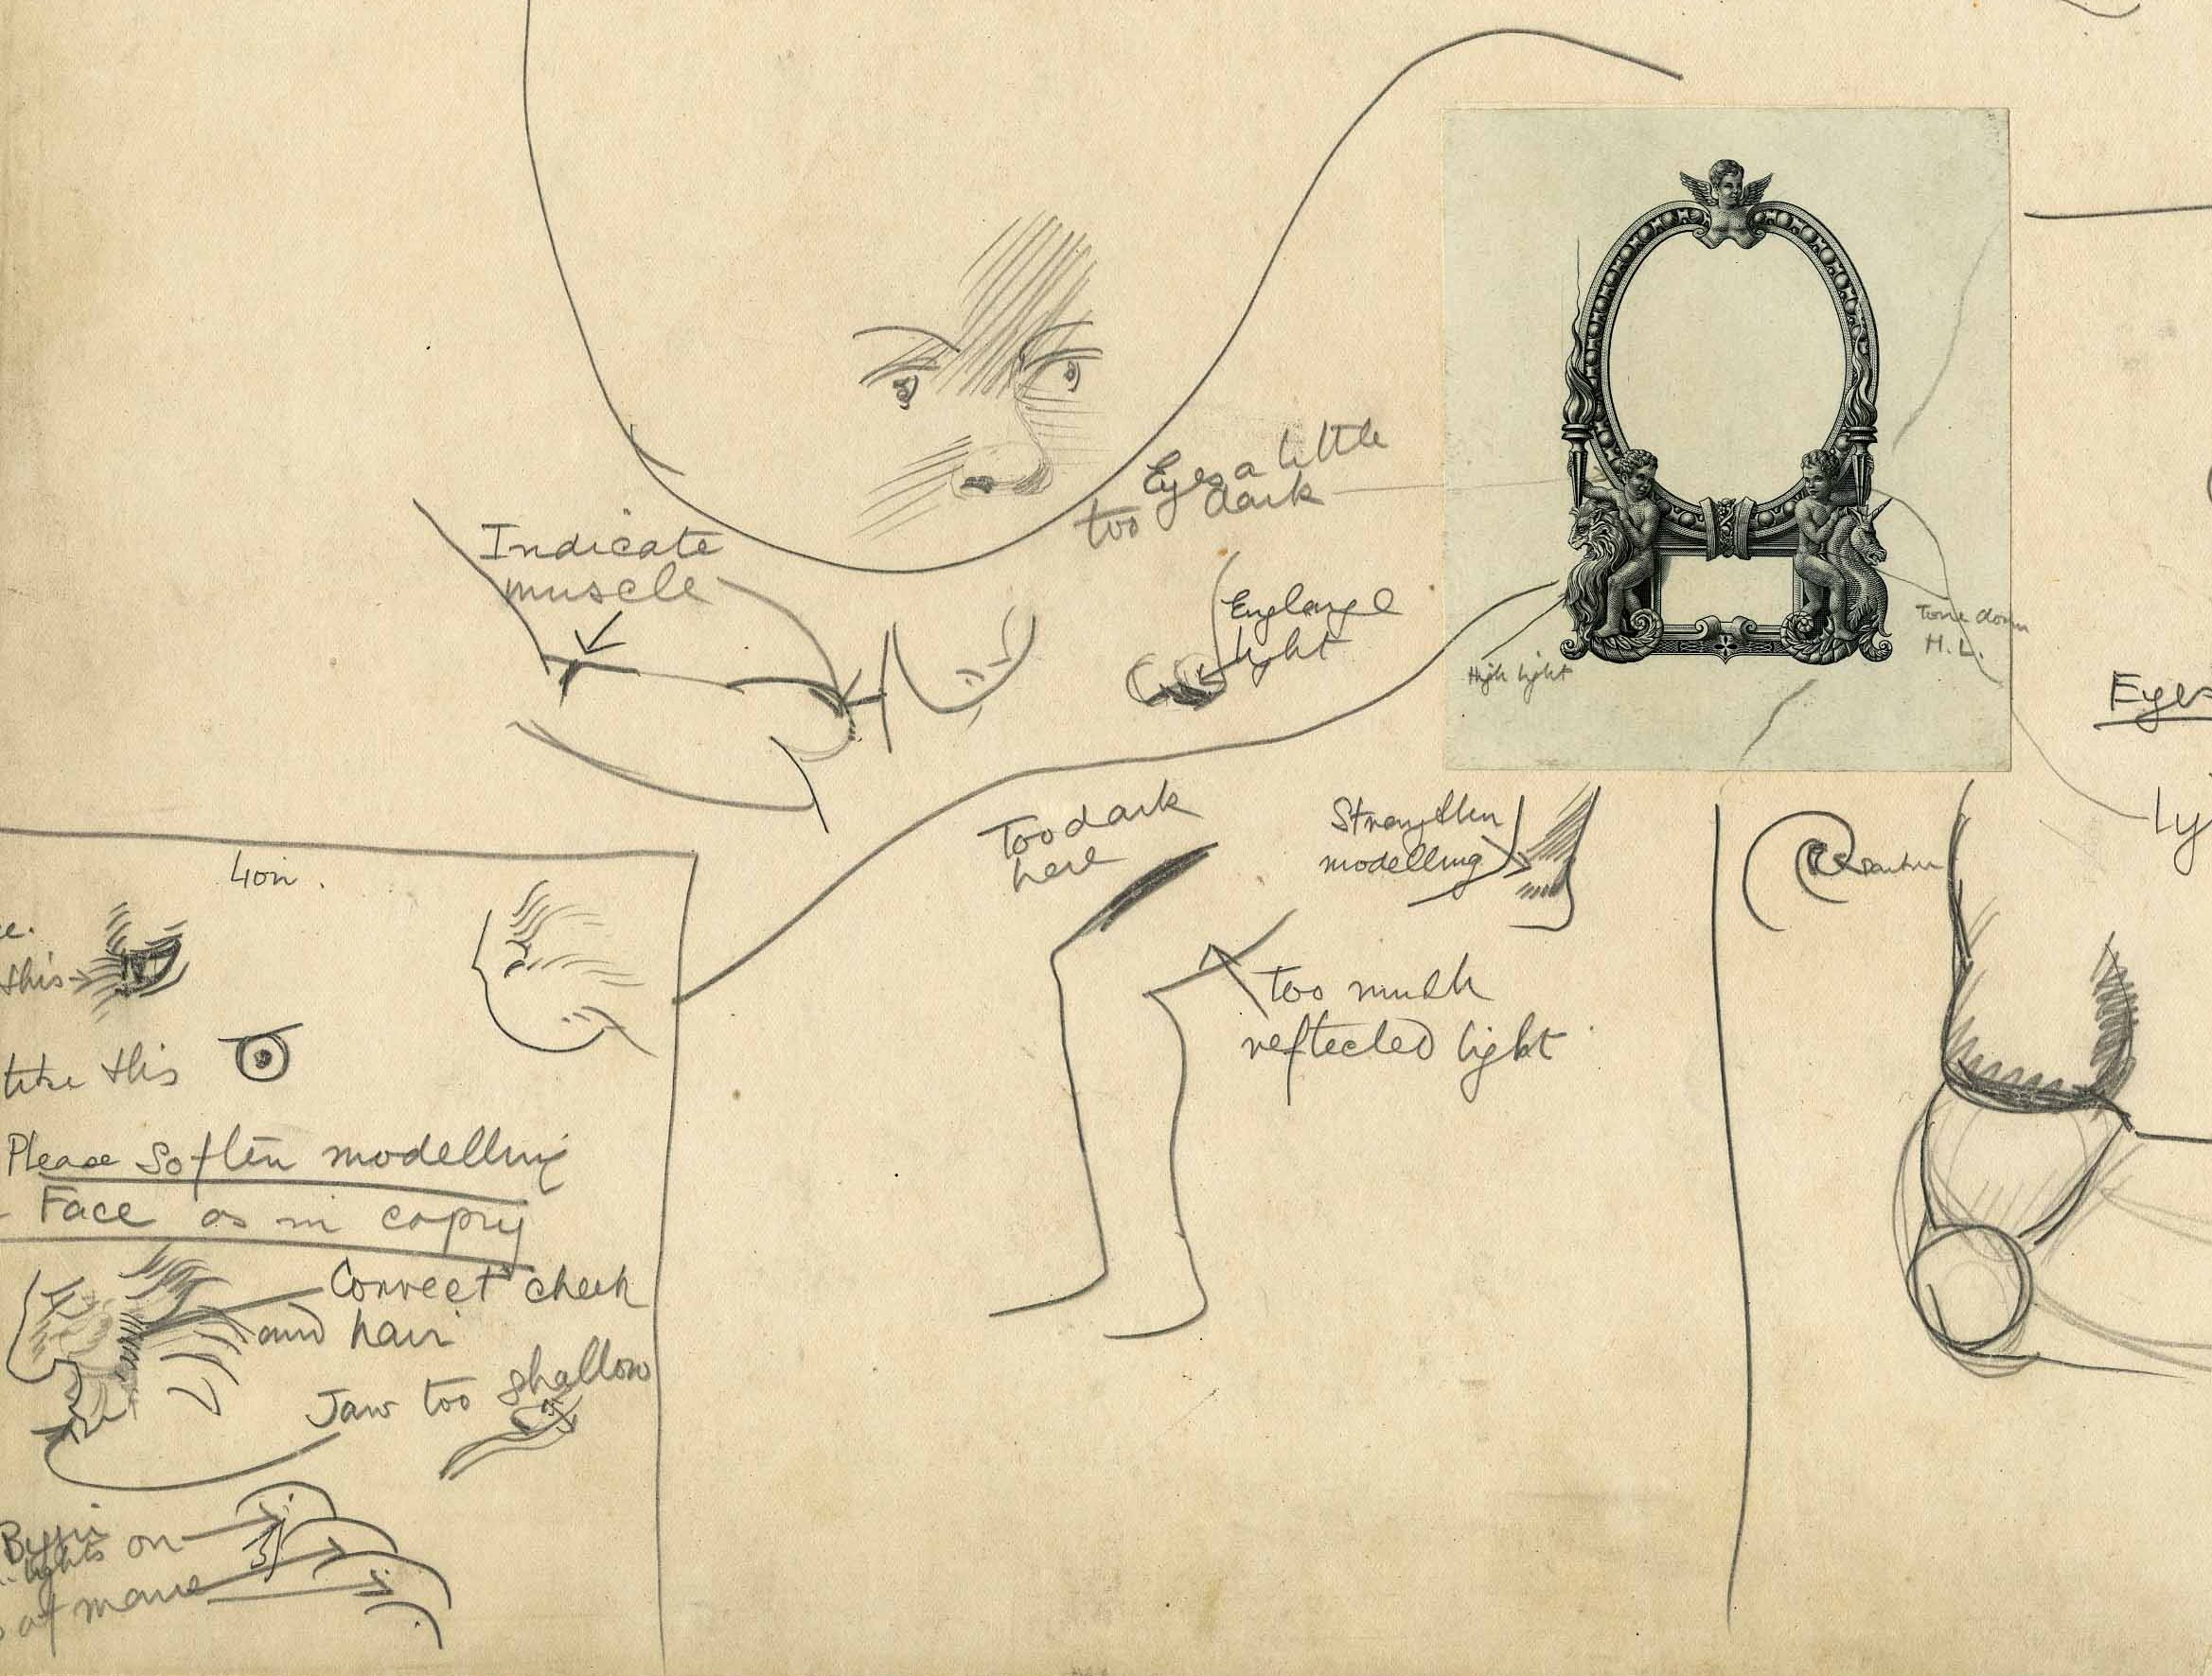 Eyes a little
too dark
Indicate
muscle
Englarge
light
High light
Tone down
H. L.
Eyes
Too dark
here
Strengthen
modelling
too much
reflected light
Lion.
this
like this
Please soften modelling
Face as in copy
Correct cheek
and hair
Jaw too shallow
lights on
of mane